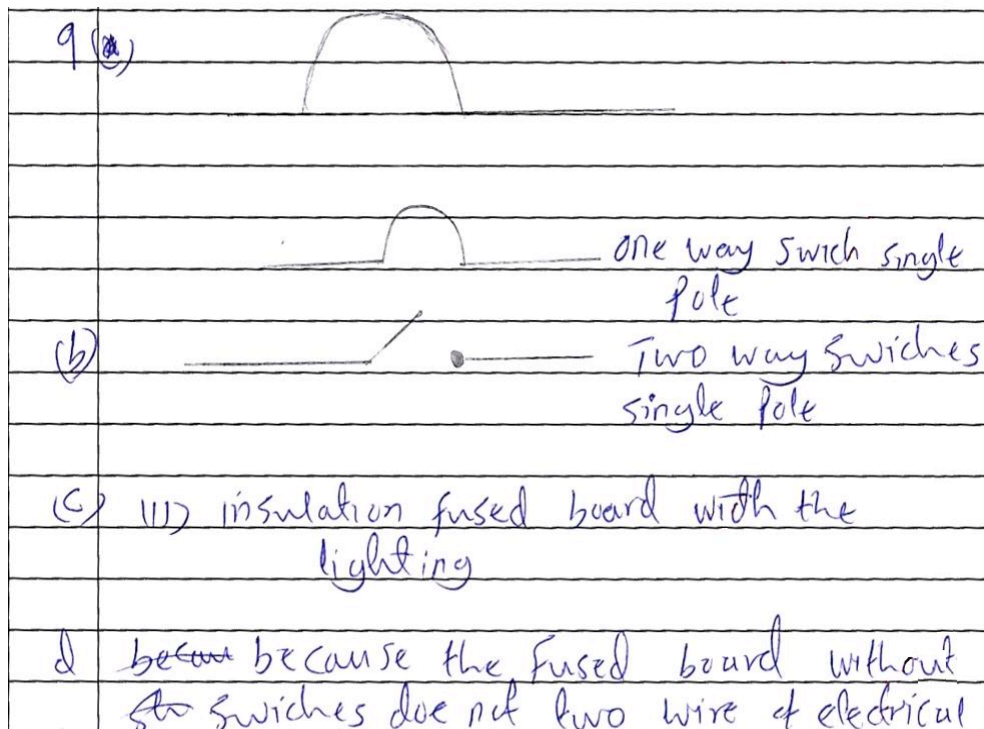 9 (a)
one way swich single
pole
(b) Two way swiches
single pole
(c) III) insulation fused board with the
lighting
d becau because the fused board without
swiches doe not two wire of electrical